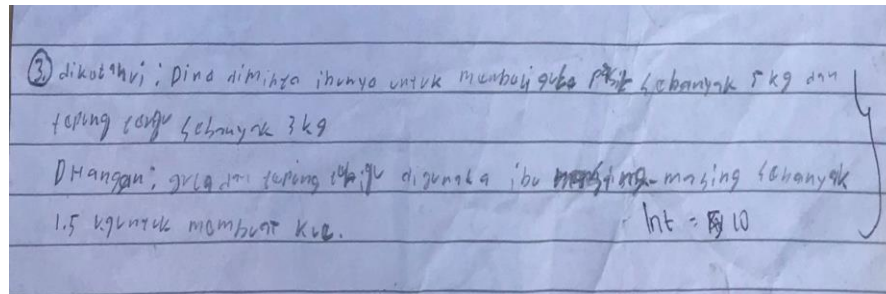 ③ dikotahui : Dina diminta ibunya untuk membeli gula pasir sebanyak 5 kg dan
teping terigu sebanyak 3 kg
Ditangan : gula dan teping terigu digunaka ibu masing-masing sebanyak
1.5 kg untuk membuat kue.
Int = 10